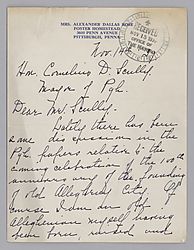 MRS. ALEXANDER DALLAS ROSE
FOSTER HOMESTEAD
3600 PENN AVENUE
PITTSBURGH, PENNA.
RECEIVED
NOV 15
OFFICE
OF THE MAYOR
Nov. 14
Hon. Cornelius D. Scully,
Mayor of Pgh.
Dear Mr. Scully,
Lately there has been
some discussion in the
Pgh papers relative to the
coming celebration of the 100th
anniversary of the founding
of old Allegheny City. Of
course I am an old
Alleghenian myself having
been born, reared and